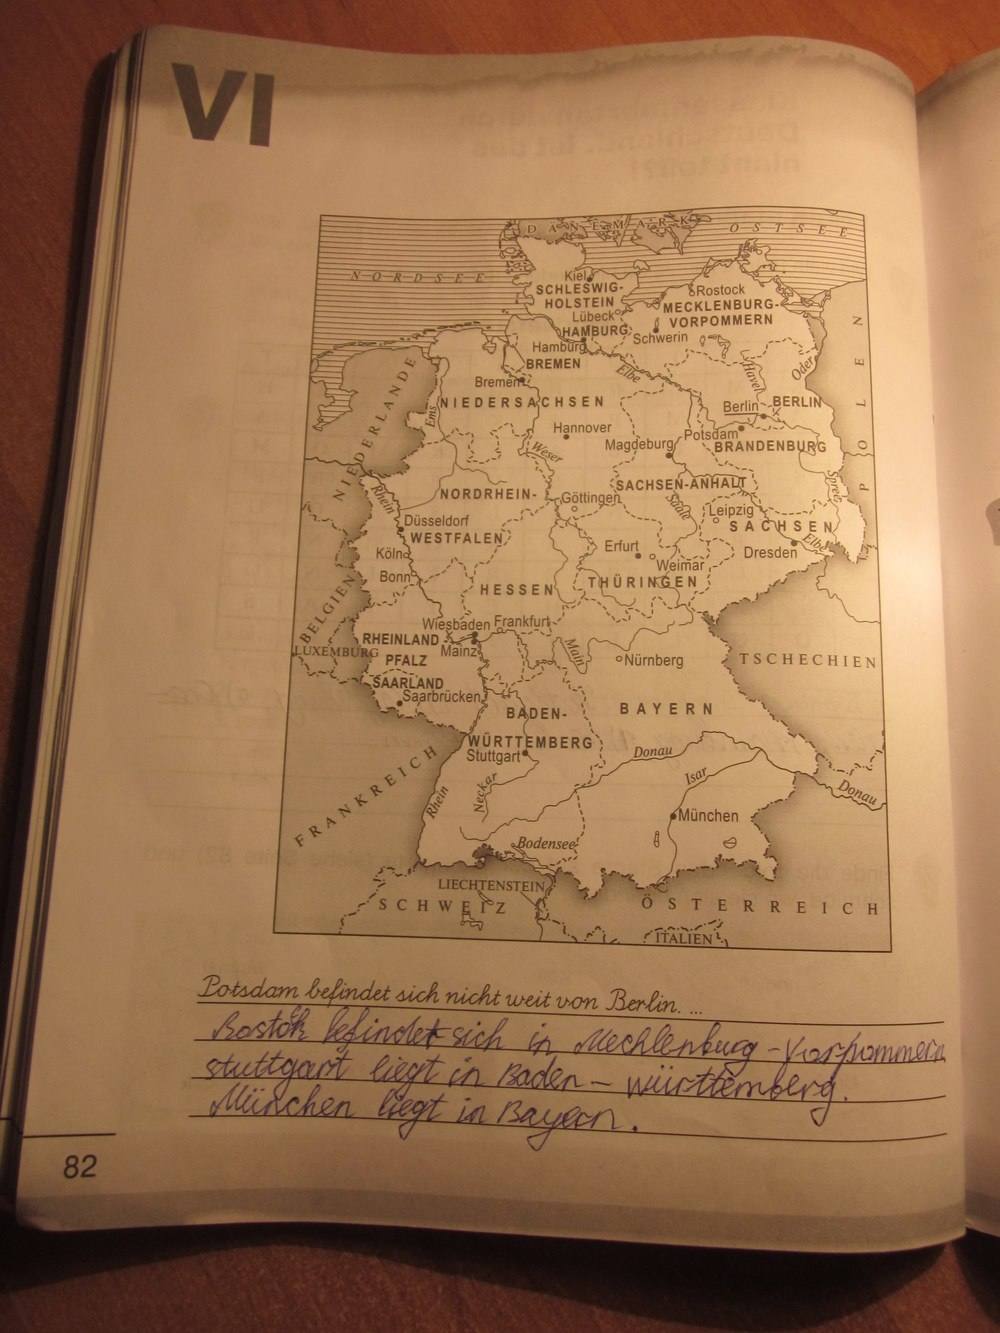 VI
DÄNEMARK
OSTSEE
NORDSEE
Kiel
SCHLESWIG-
HOLSTEIN
Rostock
MECKLENBURG-
VORPOMMERN
Lübeck
HAMBURG
Hamburg
Schwerin
BREMEN
Bremen
Elbe
Havel
Oder
POLEN
NIEDERLANDE
Ems
NIEDERSACHSEN
Berlin
BERLIN
Hannover
Potsdam
BRANDENBURG
Weser
Magdeburg
Rhein
NORDRHEIN-
WESTFALEN
Göttingen
SACHSEN-ANHALT
Saale
Spree
Leipzig
SACHSEN
Düsseldorf
Köln
Bonn
Erfurt
Weimar
Dresden
Elbe
HESSEN
THÜRINGEN
BELGIEN
LUXEMBURG
Wiesbaden
Frankfurt
RHEINLAND
PFALZ
Mainz
Main
Nürnberg
TSCHECHIEN
SAARLAND
Saarbrücken
BADEN-
WÜRTTEMBERG
BAYERN
Stuttgart
Donau
FRANKREICH
Rhein
Neckar
Isar
Donau
München
Bodensee
LIECHTENSTEIN
SCHWEIZ
ÖSTERREICH
ITALIEN
Potsdam befindet sich nicht weit von Berlin. ...
Rostok befindet sich in Mechlenburg - Vorpommern
stuttgart liegt in Baden - württemberg.
München liegt in Bayern.
82